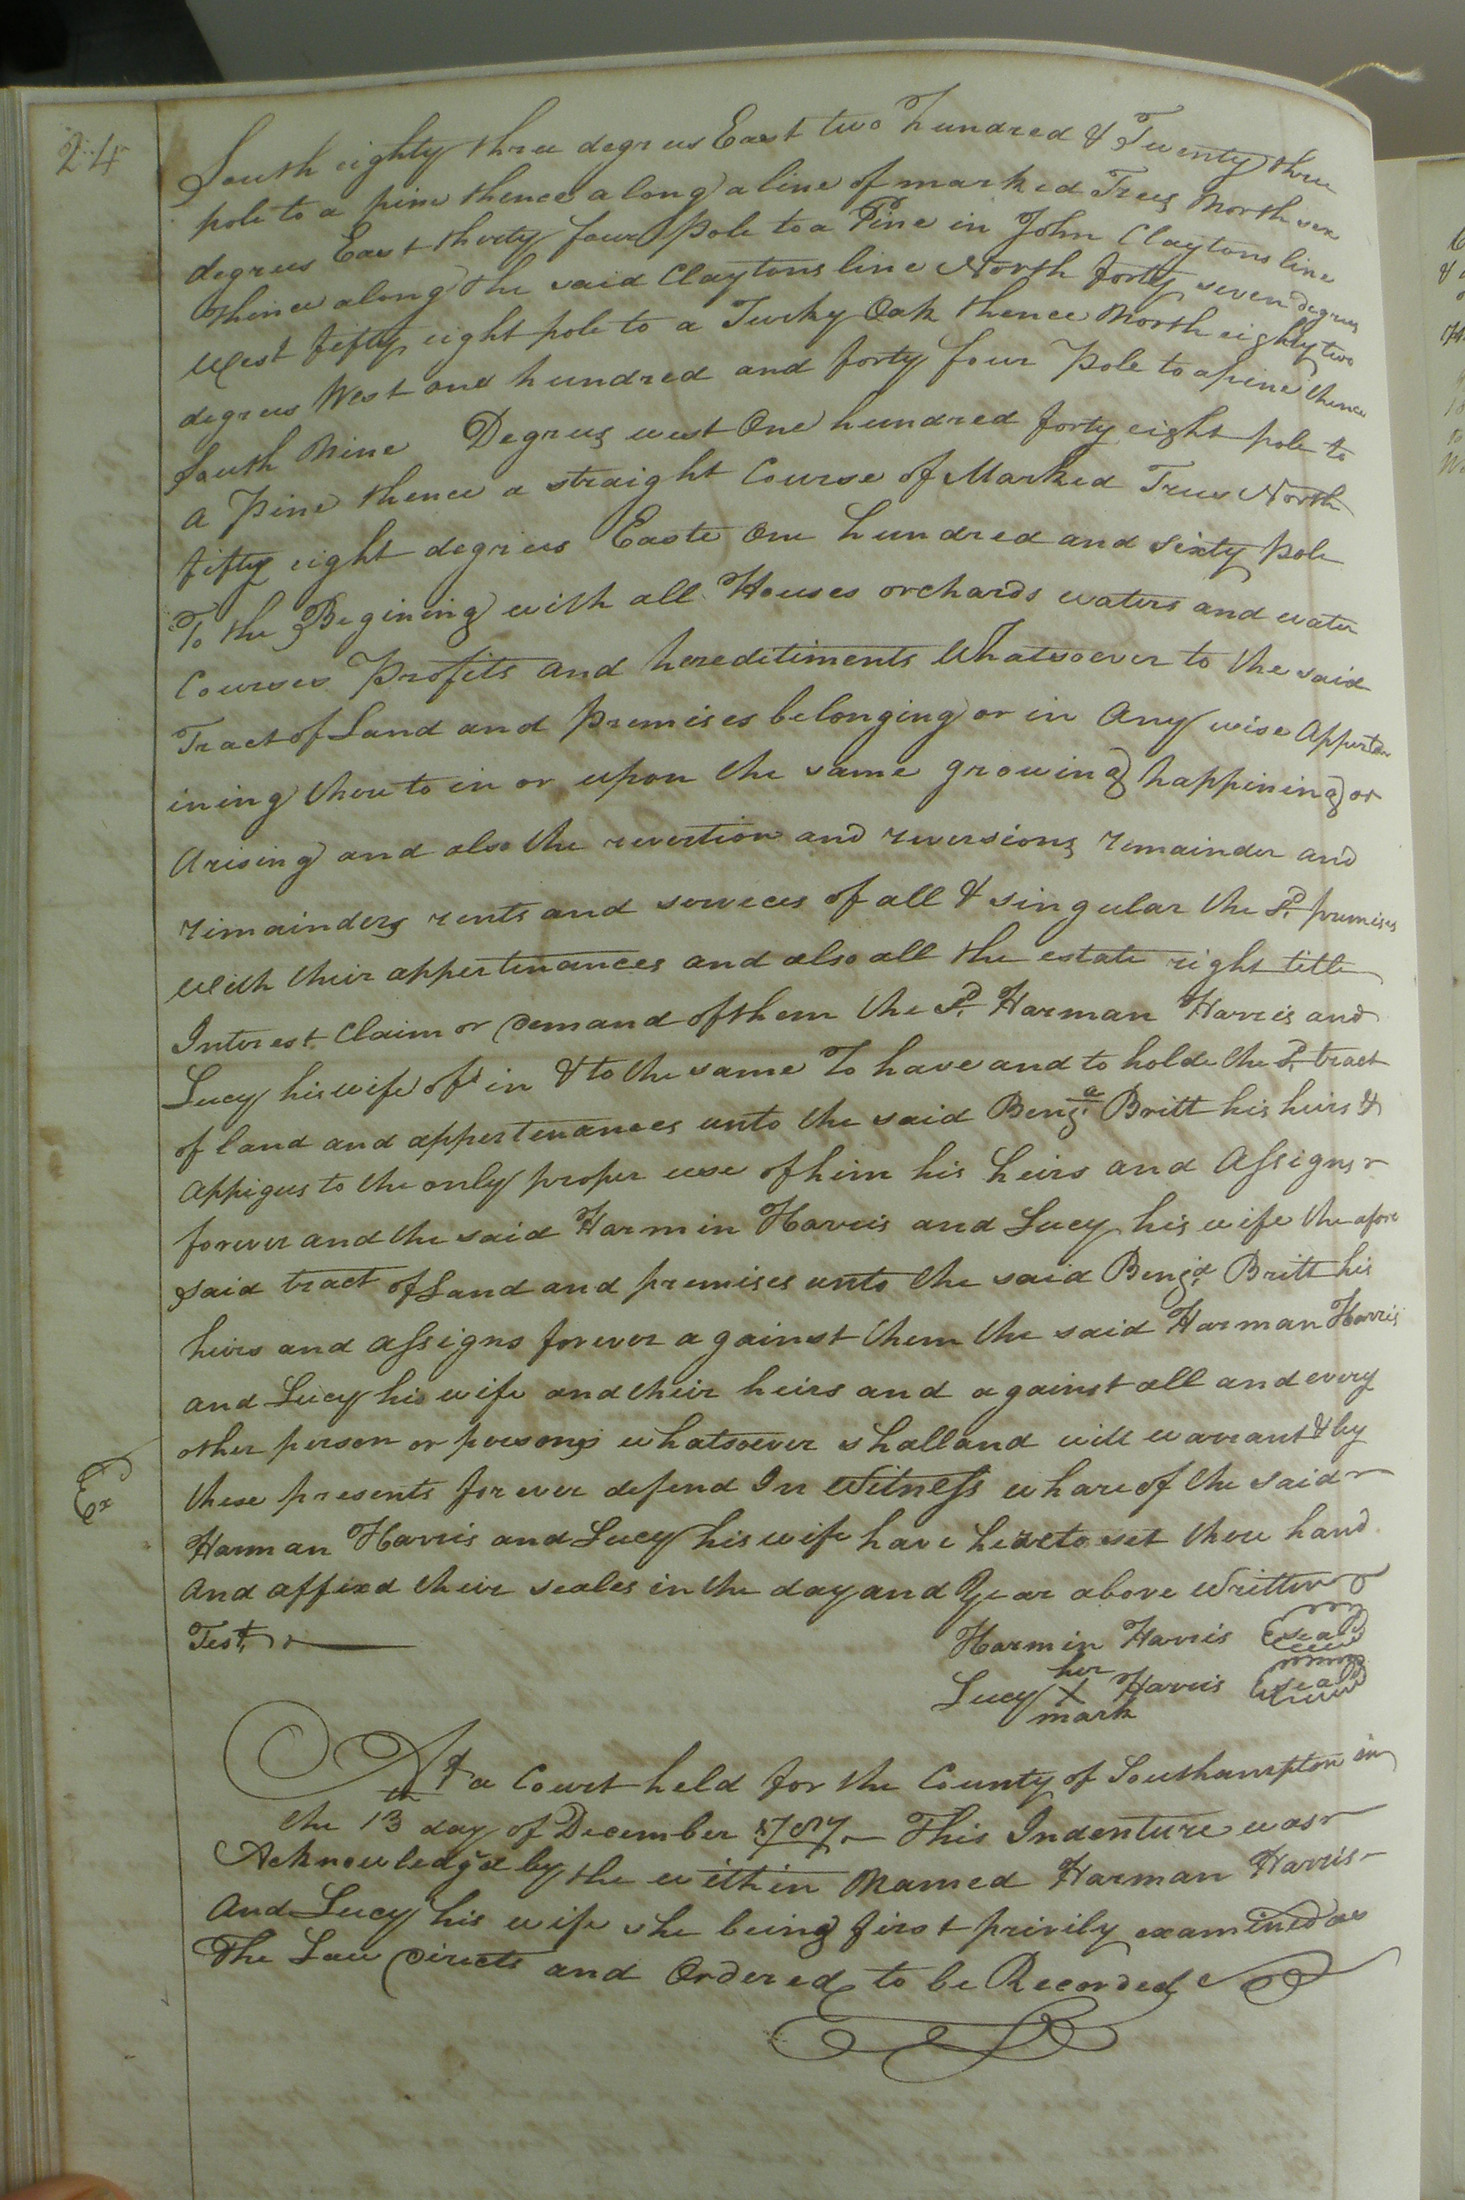 24
South eighty three degrees East two hundred & Twenty three
pole to a pine thence along a line of marked Trees North six
degrees East thirty four pole to a Pine in John Claytons line
thence along the said Claytons line North forty seven degrees
West fifty eight pole to a Turky Oak thence North eighty two
degrees West one hundred and forty four pole to a pine thence
South Nine Degrees west One hundred forty eight pole to
a Pine thence a straight Course of Marked Trees North
fifty eight degrees Easte One hundred and sixty pole
To the Begining with all Houses orchards waters and water
Courses Profits and hereditiments Whatsoever to the said
Tract of Land and Premises belonging or in Any wise Apperta
ining thereto in or upon the same growing happining or
Arising and also the revertion and reversions remainder and
remainders rents and services of all & singular the Sd. premises
with their appertenances and also all the estate right title
Interest Claim or Demand of them the Sd. Harman Harris and
Lucy his wife of in & to the same To have and to hold the Sd. tract
of land and appertenances unto the said Benja. Britt his heirs &
Assigns to the only proper use of him his heirs and Assigns
forever and the said Harmin Harris and Lucy his wife the afore
said tract of Land and premises unto the said Benja. Britt his
heirs and assigns forever against them the said Harman Harris
and Lucy his wife and their heirs and against all and every
other person or persons whatsoever shall and will warrant & by
these presents forever defend In Witness whareof the said
Ex
Harman Harris and Lucy his wife have hereto set there hand
And affixd their seales in the day and Year above Written
Test.
Harmin Harris seal
her
Lucy X Harris seal
mark
At a Court held for the County of Southampton on
the 13 day of December 1787 This Indenture was
Acknowledg'd by the within Named Harman Harris
And Lucy his wife she being first privily examined as
The Law Directs and Ordered to be Recorded